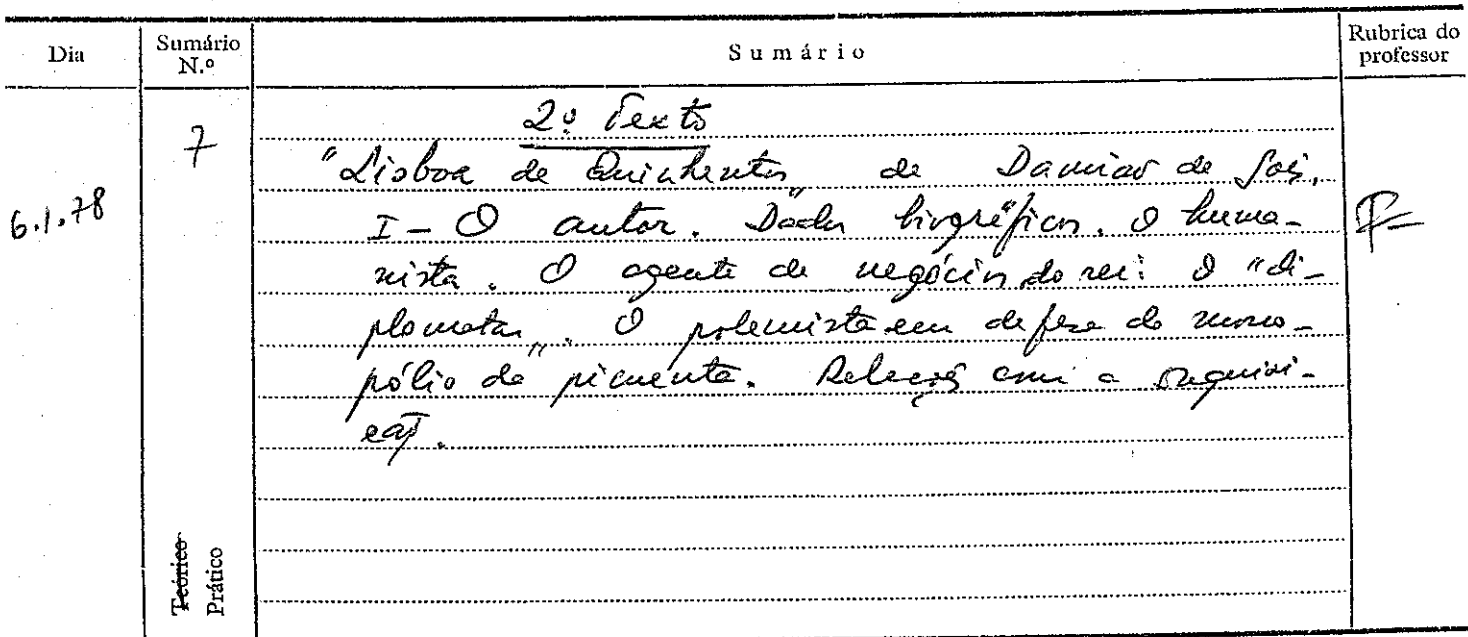 Dia
Sumário N.º
Sumário
Rubrica do professor
6.1.78
7
2º Texto
"Lisboa de Quinhentos" de Damião de Gois.
I - O autor. Dados biográficos. O huma-
nista. O agente de negócios do rei: O "di-
plomata". O polemista em defesa do mono-
pólio da pimenta. Relações com a Inquisi-
ção.
Teórico
Prático